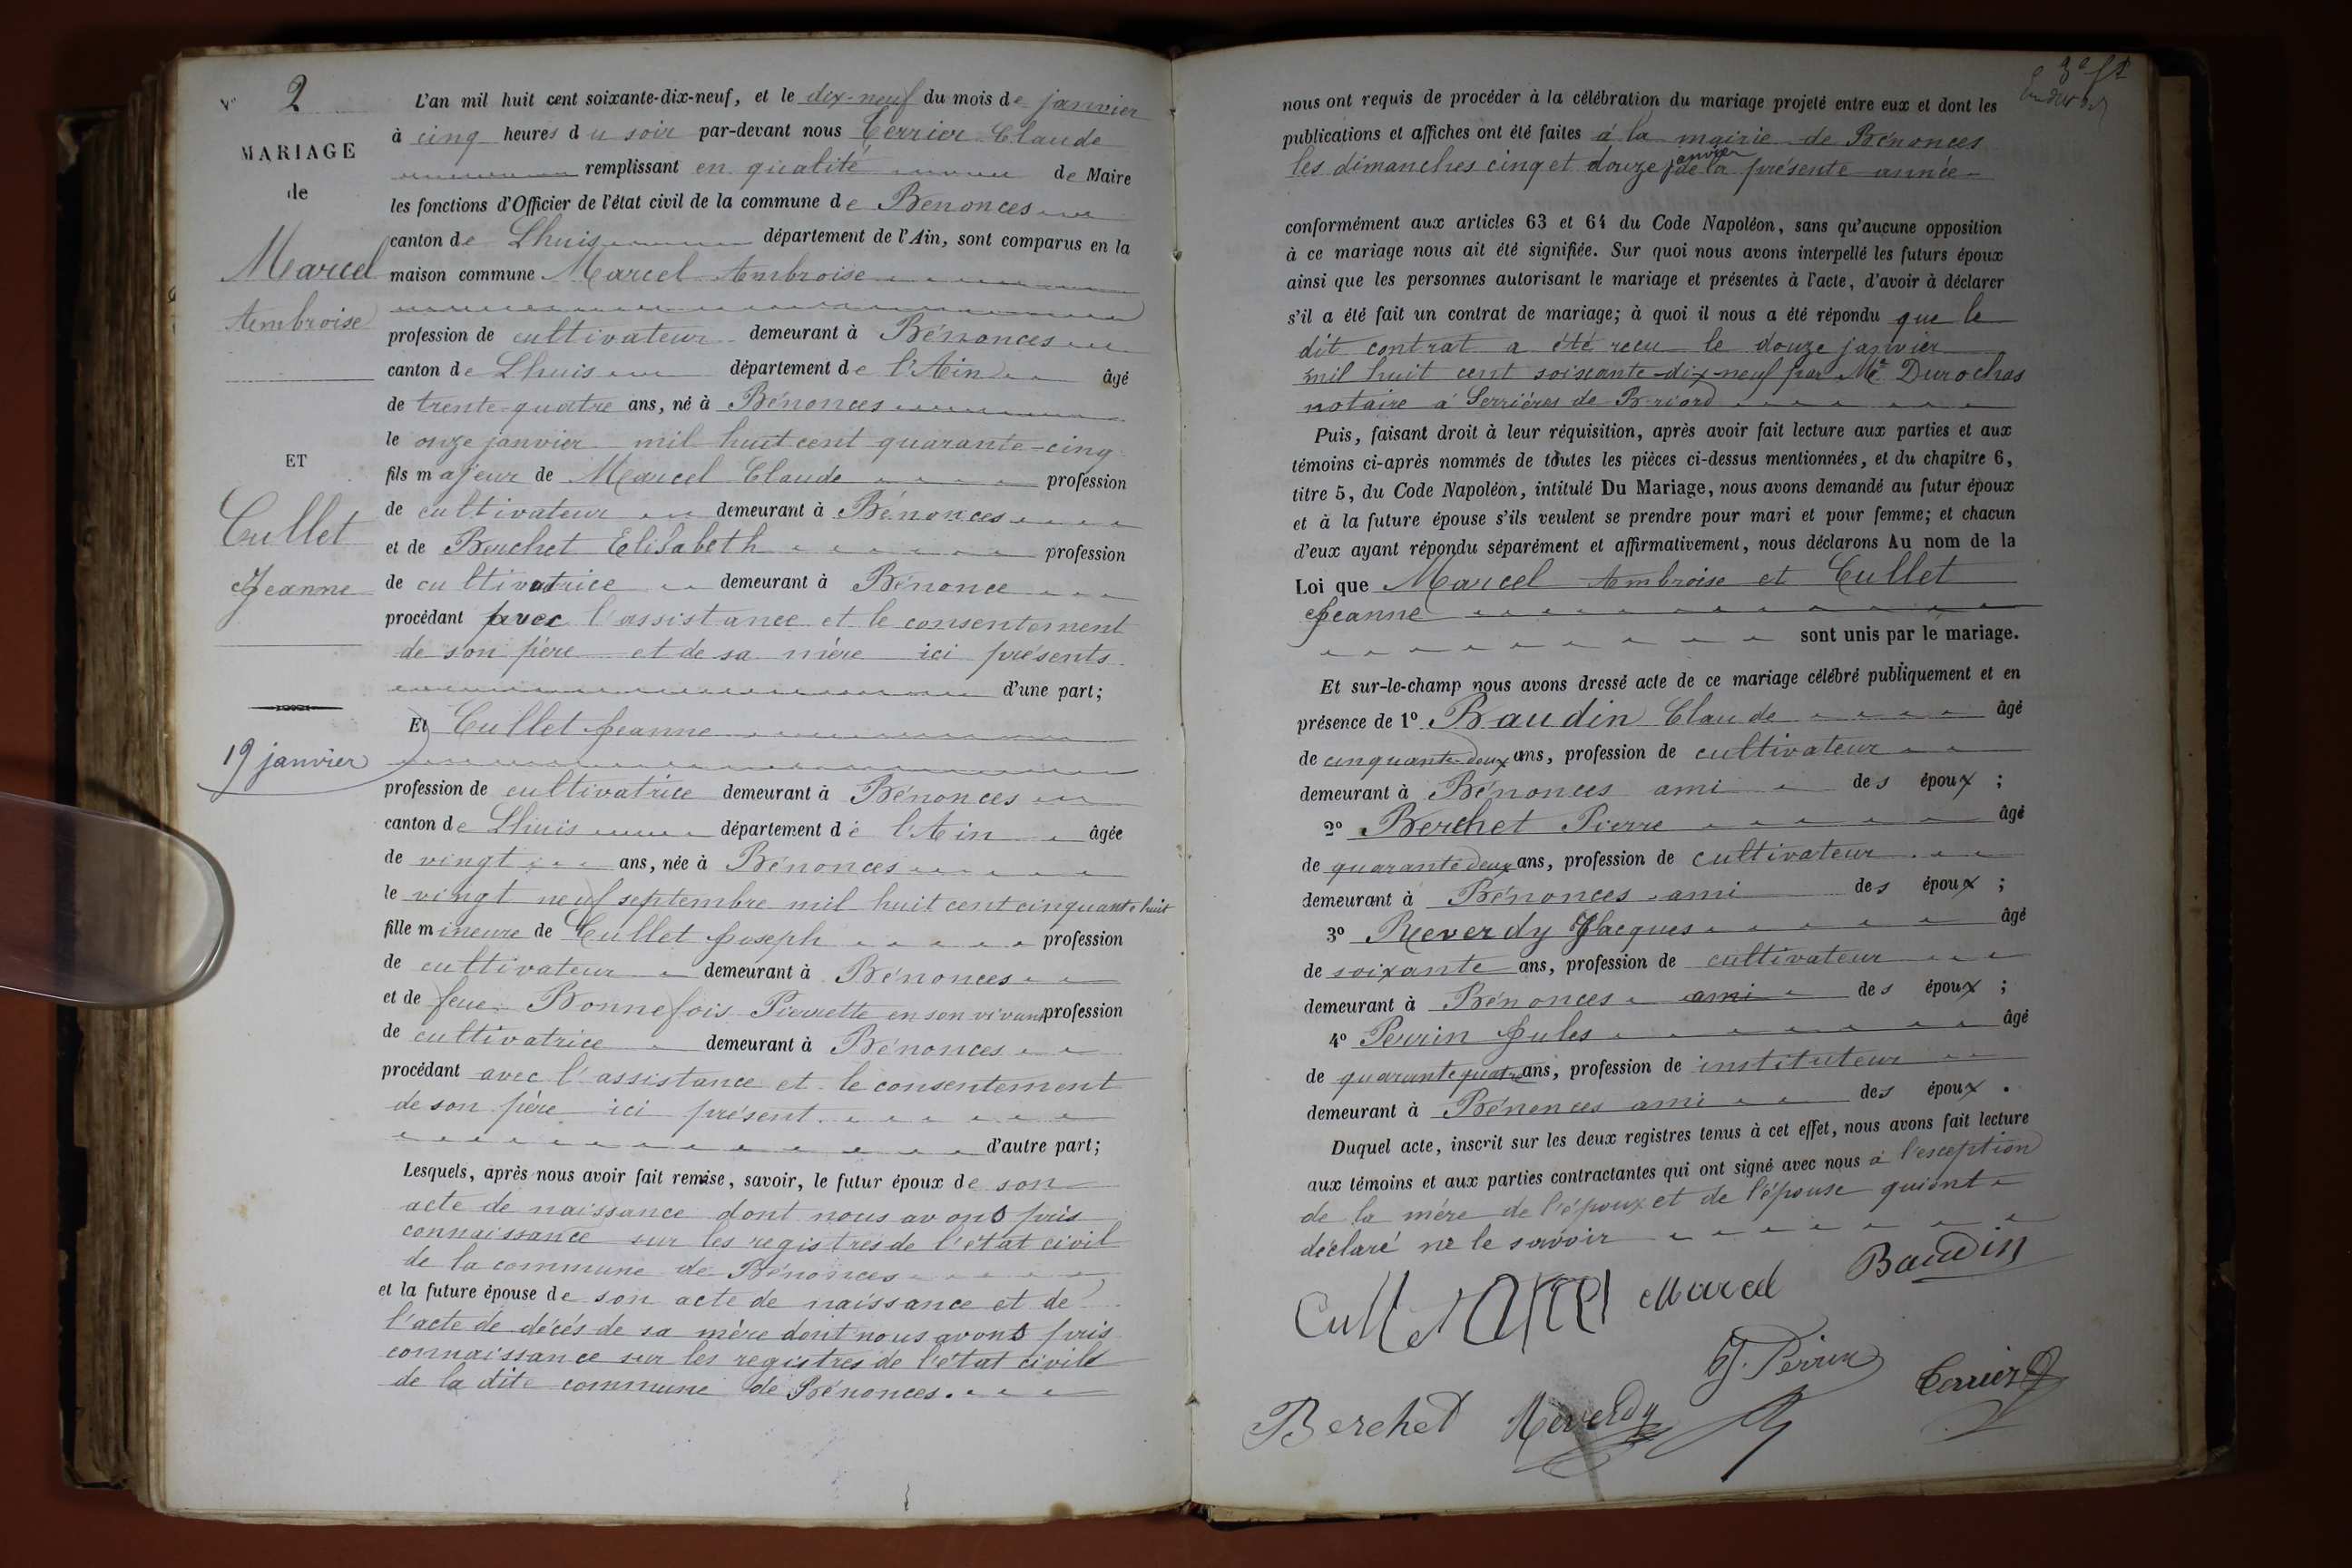 N° 2
MARIAGE
de
Marcel
Ambroise
ET
Cullet
Jeanne
19 janvier
L'an mil huit cent soixante-dix-neuf, et le dix-neuf du mois de janvier
à cinq heures du soir par-devant nous Cerrier Claude
remplissant en qualité de Maire
les fonctions d'Officier de l'état civil de la commune de Benonces
canton de Lhuis département de l'Ain, sont comparus en la
maison commune Marcel Ambroise
profession de cultivateur demeurant à Bénonces
canton de Lhuis département de l'Ain âgé
de trente-quatre ans, né à Bénonces
le onze janvier mil huit cent quarante-cinq
fils majeur de Marcel Claude profession
de cultivateur demeurant à Bénonces
et de Berchet Elisabeth profession
de cultivatrice demeurant à Bénonce
procédant avec l'assistance et le consentement
de son père et de sa mère ici présents
d'une part;
Et Cullet Jeanne
profession de cultivatrice demeurant à Bénonces
canton de Lhuis département de l'Ain âgée
de vingt ans, née à Bénonces
le vingt neuf septembre mil huit cent cinquante huit
fille mineure de Cullet Joseph profession
de cultivateur demeurant à Bénonces
et de feue Bonnefois Pierrette en son vivant profession
de cultivatrice demeurant à Bénonces
procédant avec l'assistance et le consentement
de son père ici présent
d'autre part;
Lesquels, après nous avoir fait remise, savoir, le futur époux de son
acte de naissance dont nous avons pris
connaissance sur les registres de l'état civil
de la commune de Bénonces
et la future épouse de son acte de naissance et de
l'acte de décés de sa mère dont nous avons pris
connaissance sur les registres de l'état civile
de la dite commune de Bénonces.
nous ont requis de procéder à la célébration du mariage projeté entre eux et dont les
publications et affiches ont été faites à la mairie de Bénonces
les dimanches cinq et douze janvier de la présente année
conformément aux articles 63 et 64 du Code Napoléon, sans qu'aucune opposition
à ce mariage nous ait été signifiée. Sur quoi nous avons interpellé les futurs époux
ainsi que les personnes autorisant le mariage et présentes à l'acte, d'avoir à déclarer
s'il a été fait un contrat de mariage; à quoi il nous a été répondu que le
dit contrat a été recu le douze janvier
mil huit cent soixante-dix-neuf par Me Durochas
notaire à Serrières de Briord
Puis, faisant droit à leur réquisition, après avoir fait lecture aux parties et aux
témoins ci-après nommés de toutes les pièces ci-dessus mentionnées, et du chapitre 6,
titre 5, du Code Napoléon, intitulé Du Mariage, nous avons demandé au futur époux
et à la future épouse s'ils veulent se prendre pour mari et pour femme; et chacun
d'eux ayant répondu séparément et affirmativement, nous déclarons Au nom de la
Loi que Marcel Ambroise et Cullet
Jeanne
sont unis par le mariage.
Et sur-le-champ nous avons dressé acte de ce mariage célébré publiquement et en
présence de 1° Baudin Claude âgé
de cinquante-deux ans, profession de cultivateur
demeurant à Bénonces ami des époux ;
2° Berchet Pierre âgé
de quarante deux ans, profession de cultivateur
demeurant à Bénonces ami des époux ;
3° Reverdy Jacques âgé
de soixante ans, profession de cultivateur
demeurant à Bénonces ami des époux ;
4° Perrin Jules âgé
de quarante quatre ans, profession de instituteur
demeurant à Bénonces ami des époux .
Duquel acte, inscrit sur les deux registres tenus à cet effet, nous avons fait lecture
aux témoins et aux parties contractantes qui ont signé avec nous à l'esception
de la mère de l'époux et de l'épouse qui ont
déclaré ne le savoir
Cullet Marcel Baudin
J. Perrin Cerrier
Berchet Reverdy